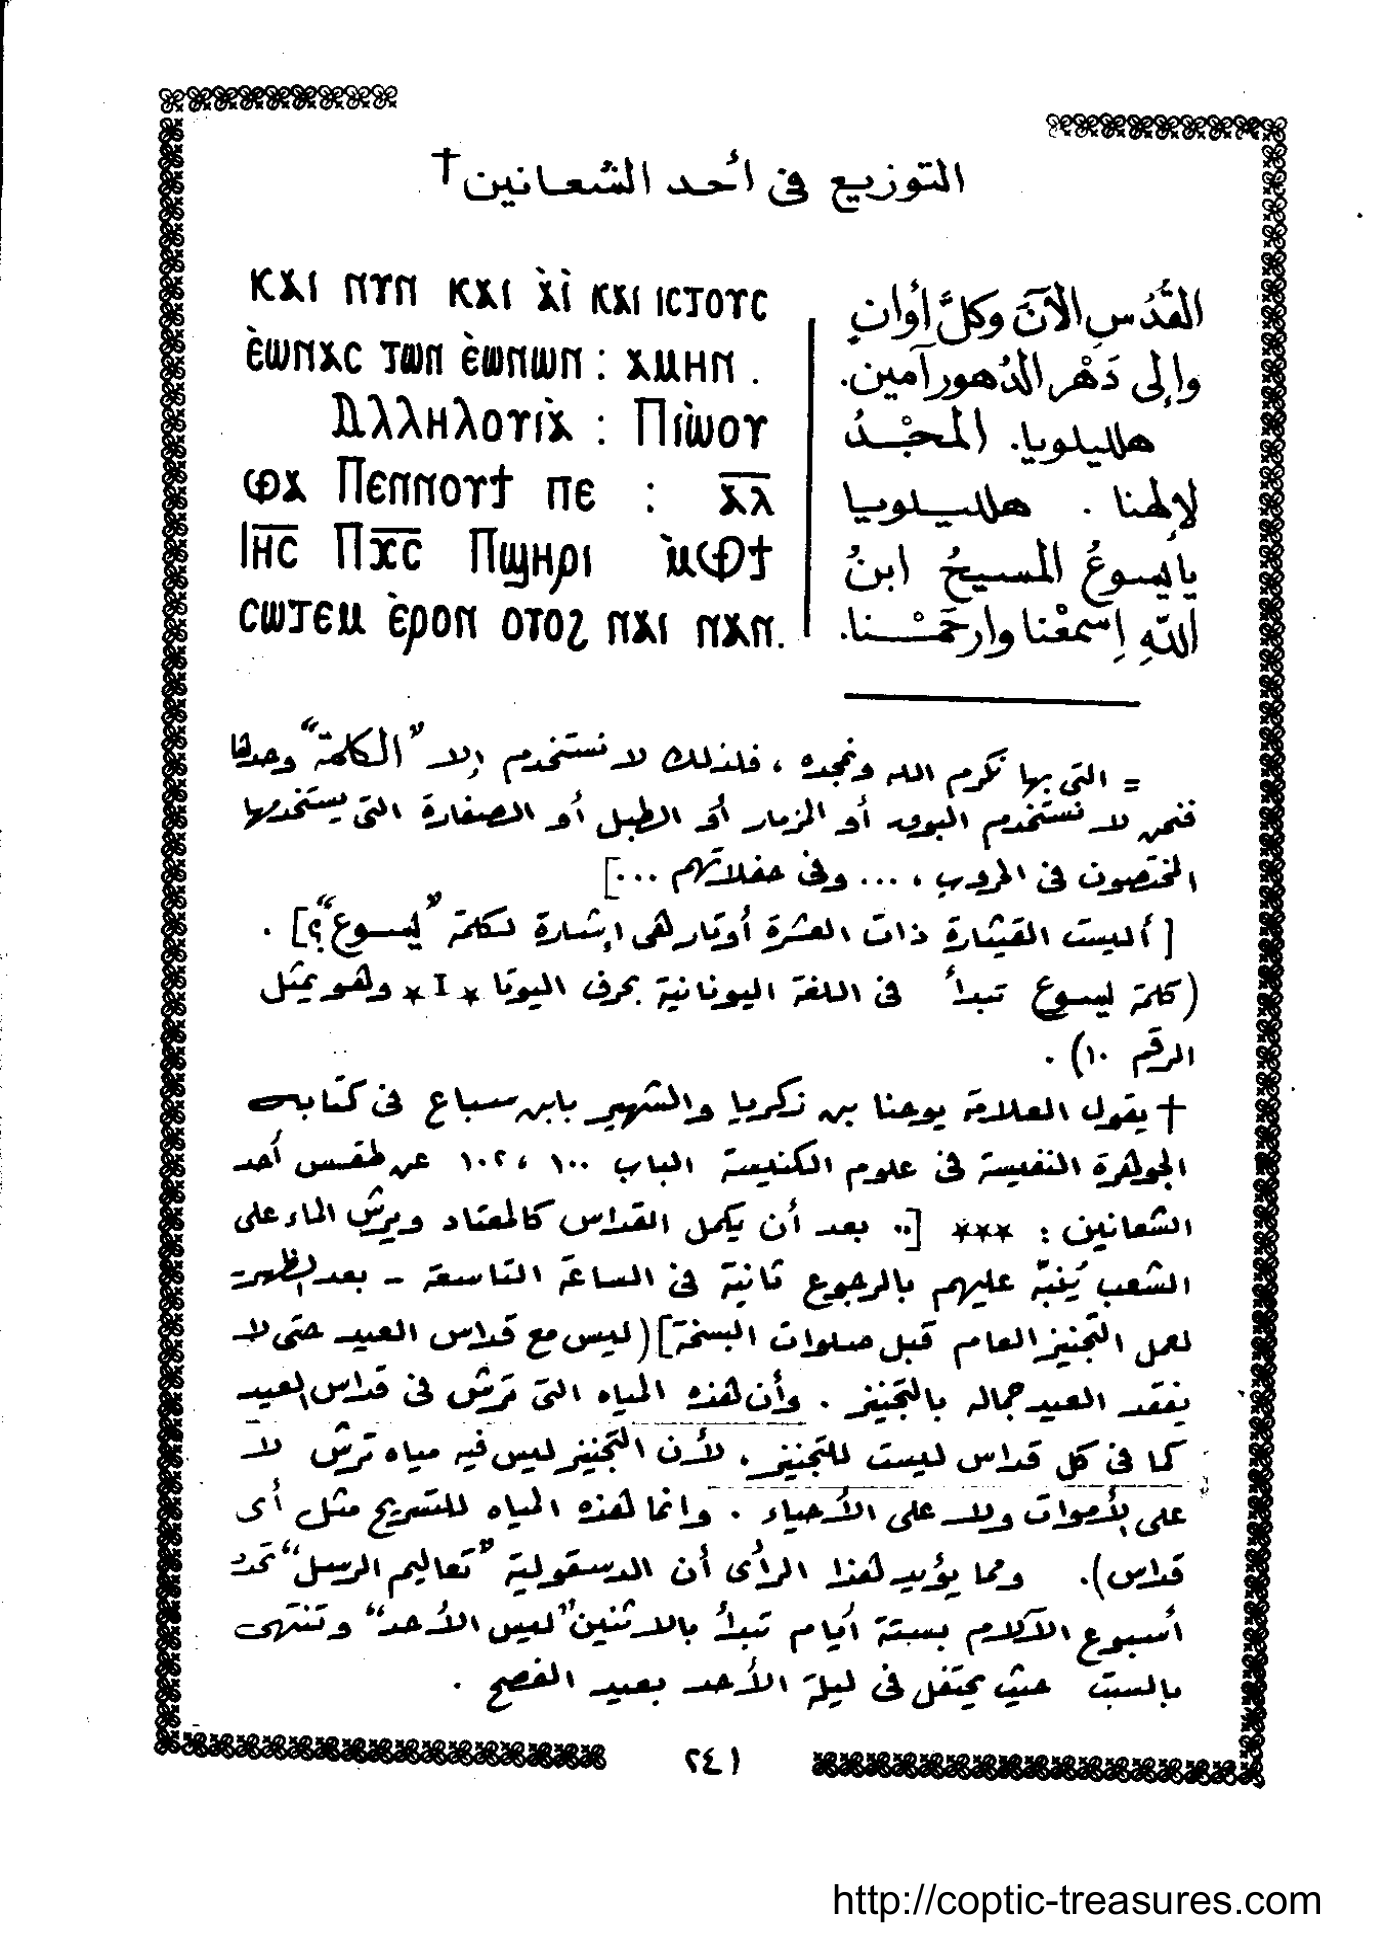 التوزيع فى أحد الشعانين †
ⲕⲁⲓ ⲛⲩⲛ ⲕⲁⲓ ⲁ̀ⲓ̀ ⲕⲁⲓ ⲓⲥⲧⲟⲩⲥ
ⲉ̀ⲱⲛⲁⲥ ⲧⲱⲛ ⲉ̀ⲱⲛⲱⲛ : ⲁⲙⲏⲛ .
Ⲁⲗⲗⲏⲗⲟⲩⲓⲁ̀ : Ⲡⲓⲱ̀ⲟⲩ
ⲫⲁ Ⲡⲉⲛⲛⲟⲩϯ ⲡⲉ : ⲁ̅ⲗ̅
Ⲓⲏ̅ⲥ̅ Ⲡⲭ̅ⲥ̅ Ⲡϣⲏⲣⲓ ⲙ̀ⲫϯ
ⲥⲱⲧⲉⲙ ⲉ̀ⲣⲟⲛ ⲟⲩⲟϩ ⲛⲁⲓ ⲛⲁⲛ.
القُدُسِ الآنَ وَكلَّ أوانٍ
وإلى دَهْرِ الدُهورِ آمين.
هلليلويا. المَجْدُ
لإلهنا . هلليلويا
يا يسوعُ المسيحُ ابنُ
اللّهِ إسمعْنا وارحَمْنا.
= التى بها نكرم الله ونمجده ، فلذلك لا نستخدم إلا "الكلمة" وحدها
فنحن لا نستخدم البوق أو المزمار أو الطبل أو الصفارة التى يستخدمها
المختصون فى الحروب ، ... وفى حفلاتهم ...]
[ أليست القيثارة ذات العشرة أوتار هى إشارة لكلمة "يسوع"؟] .
(كلمة يسوع تبدأ فى اللغة اليونانية بحرف اليوتا * I * وهو يمثل
الرقم ١٠) .
† يقول العلامة يوحنا بن زكريا والشهير بابن سباع فى كتابه
الجوهرة النفيسة فى علوم الكنيسة الباب ١٠٠ ، ١٠٢ عن طقس أحد
الشعانين : *** [.. بعد أن يكمل القداس كالمعتاد ويرش الماء على
الشعب يُنبّه عليهم بالرجوع ثانية فى الساعة التاسعة - بعد الظهر -
لعمل التجنيز العام قبل صلوات البسخة] (ليس مع قداس العيد حتى لا
يفقد العيد جماله بالتجنيز . وأن هذه المياه التى ترش فى قداس العيد
كما فى كل قداس ليست للتجنيز . لأن التجنيز ليس فيه مياه ترش لا
على الأموات ولا على الأحياء . وانما هذه المياه للتسريح مثل أى
قداس). ومما يؤيد هذا الرأى أن الدسقولية "تعاليم الرسل" تحدد
أسبوع الآلام بستة أيام تبدأ بالاثنين "ليس الأحد" وتنتهى
بالسبت حيث يحتفل فى ليلة الأحد بعيد الفصح .
٢٤١
http://coptic-treasures.com